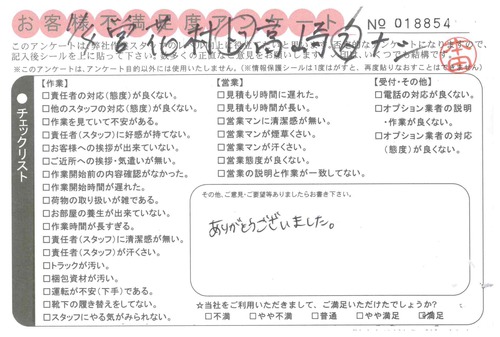 お客様不満足度アンケート
No 018854
チェックリスト
【作業】
□責任者の対応(態度)が良くない。
□他のスタッフの対応(態度)が良くない。
□作業を見ていて不安がある。
□責任者(スタッフ)に好感が持てない。
□お客様への挨拶が出来ていない。
□ご近所への挨拶・気遣いが無い。
□作業開始前の内容確認がなかった。
□作業開始時間が遅れた。
□荷物の取り扱いが雑である。
□お部屋の養生が出来ていない。
□作業時間が長すぎる。
□責任者(スタッフ)に清潔感が無い。
□責任者(スタッフ)が汗くさい。
□トラックが汚い。
□梱包資材が汚い。
□運転が不安(下手)である。
□靴下の履き替えをしてない。
□スタッフにやる気がみられない。
【営業】
□見積もり時間に遅れた。
□見積もり時間が長い。
□営業マンに清潔感が無い。
□営業マンが煙草くさい。
□営業マンが汗くさい。
□営業態度が良くない。
□営業の説明と作業が一致してない。
【受付・その他】
□電話の対応が良くない。
□オプション業者の説明
・作業が良くない。
□オプション業者の対応
(態度)が良くない。
その他、ご意見・ご要望等ありましたらお書き下さい。
ありがとうございました。
☆当社をご利用いただきまして、ご満足いただけたでしょうか?
□不満 □やや不満 □普通 □やや満足 ☑満足